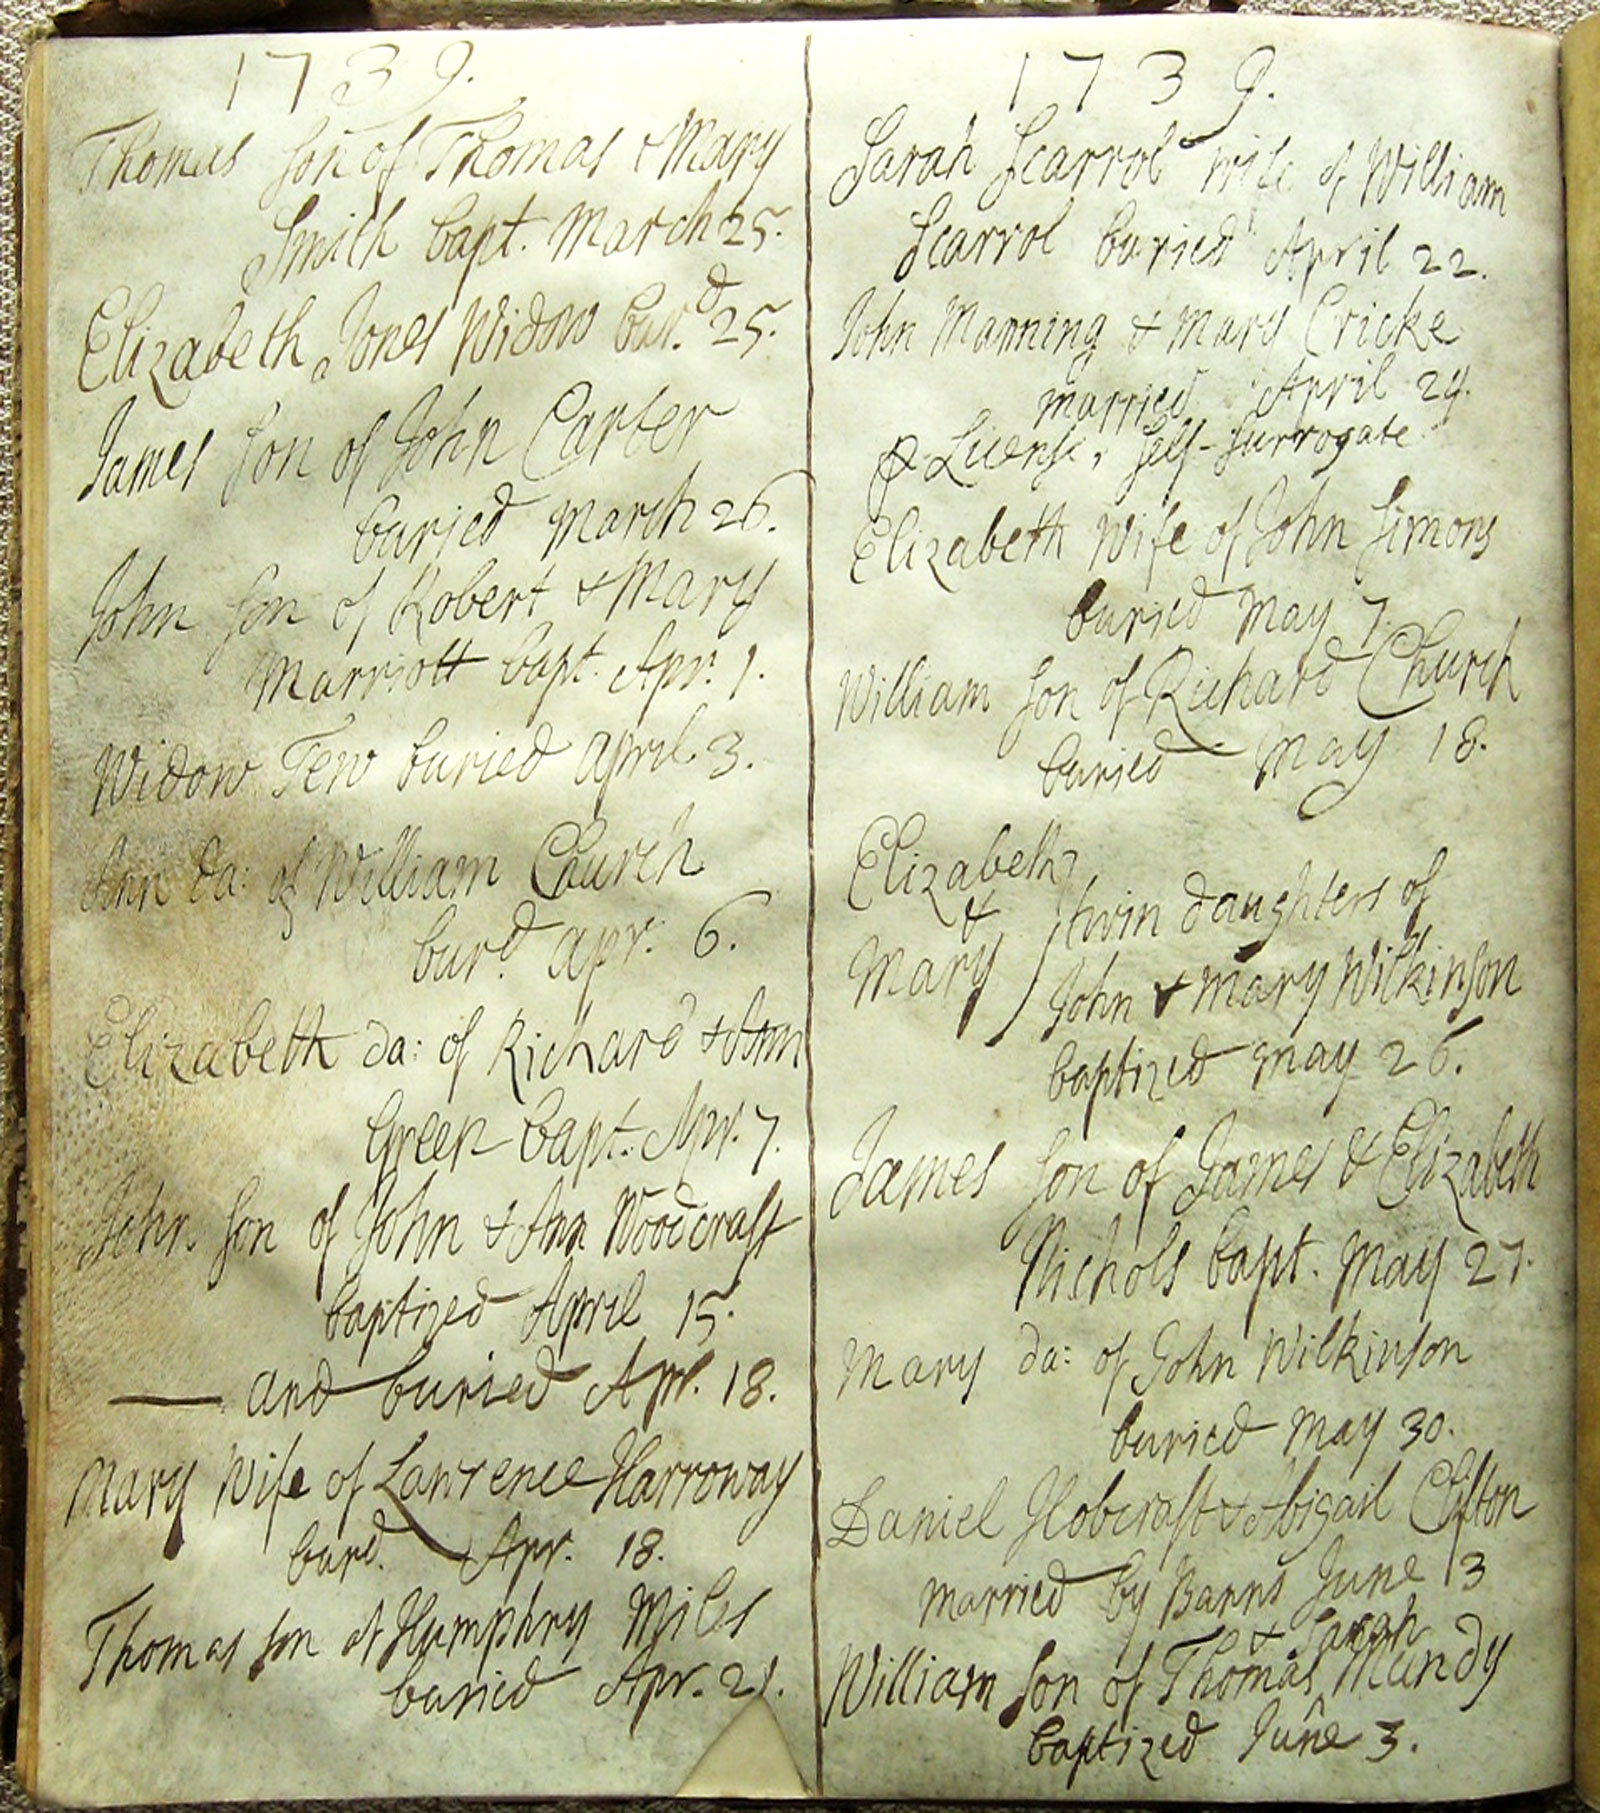 1739.
Thomas son of Thomas & Mary
Smith bapt. March 25.
Elizabeth Jones Widow bur.d 25.
James son of John Carter
buried March 26.
John son of Robert & Mary
Marriott bapt. Apr. 1.
Widow Tew buried April. 3.
Ann da: of William Church
bur.d Apr. 6.
Elizabeth da: of Richard & Ann
Green bapt. Apr. 7.
John son of John & Ann Woodcraft
baptized April 15.
— and buried Apr. 18.
Mary Wife of Lawrence Harroway
burd. Apr. 18.
Thomas son of Humphry Miles
buried Apr. 21.
1739.
Sarah Scarrol wife of William
Scarrol buried April 22.
John Manning & Mary Cricke
married April 24.
p License, Self-Surrogate
Elizabeth Wife of John Simons
buried May 7.
William son of Richard Church
buried May 18.
Elizabeth
& twin daughters of
Mary John & Mary Wilkinson
baptized May 26.
James son of James & Elizabeth
Nichols bapt. May 27.
Mary da: of John Wilkinson
buried May 30.
Daniel Hobcraft & Abigail Clifton
married by Banns June 3
& Sarah
William son of Thomas Mundy
baptized June 3.